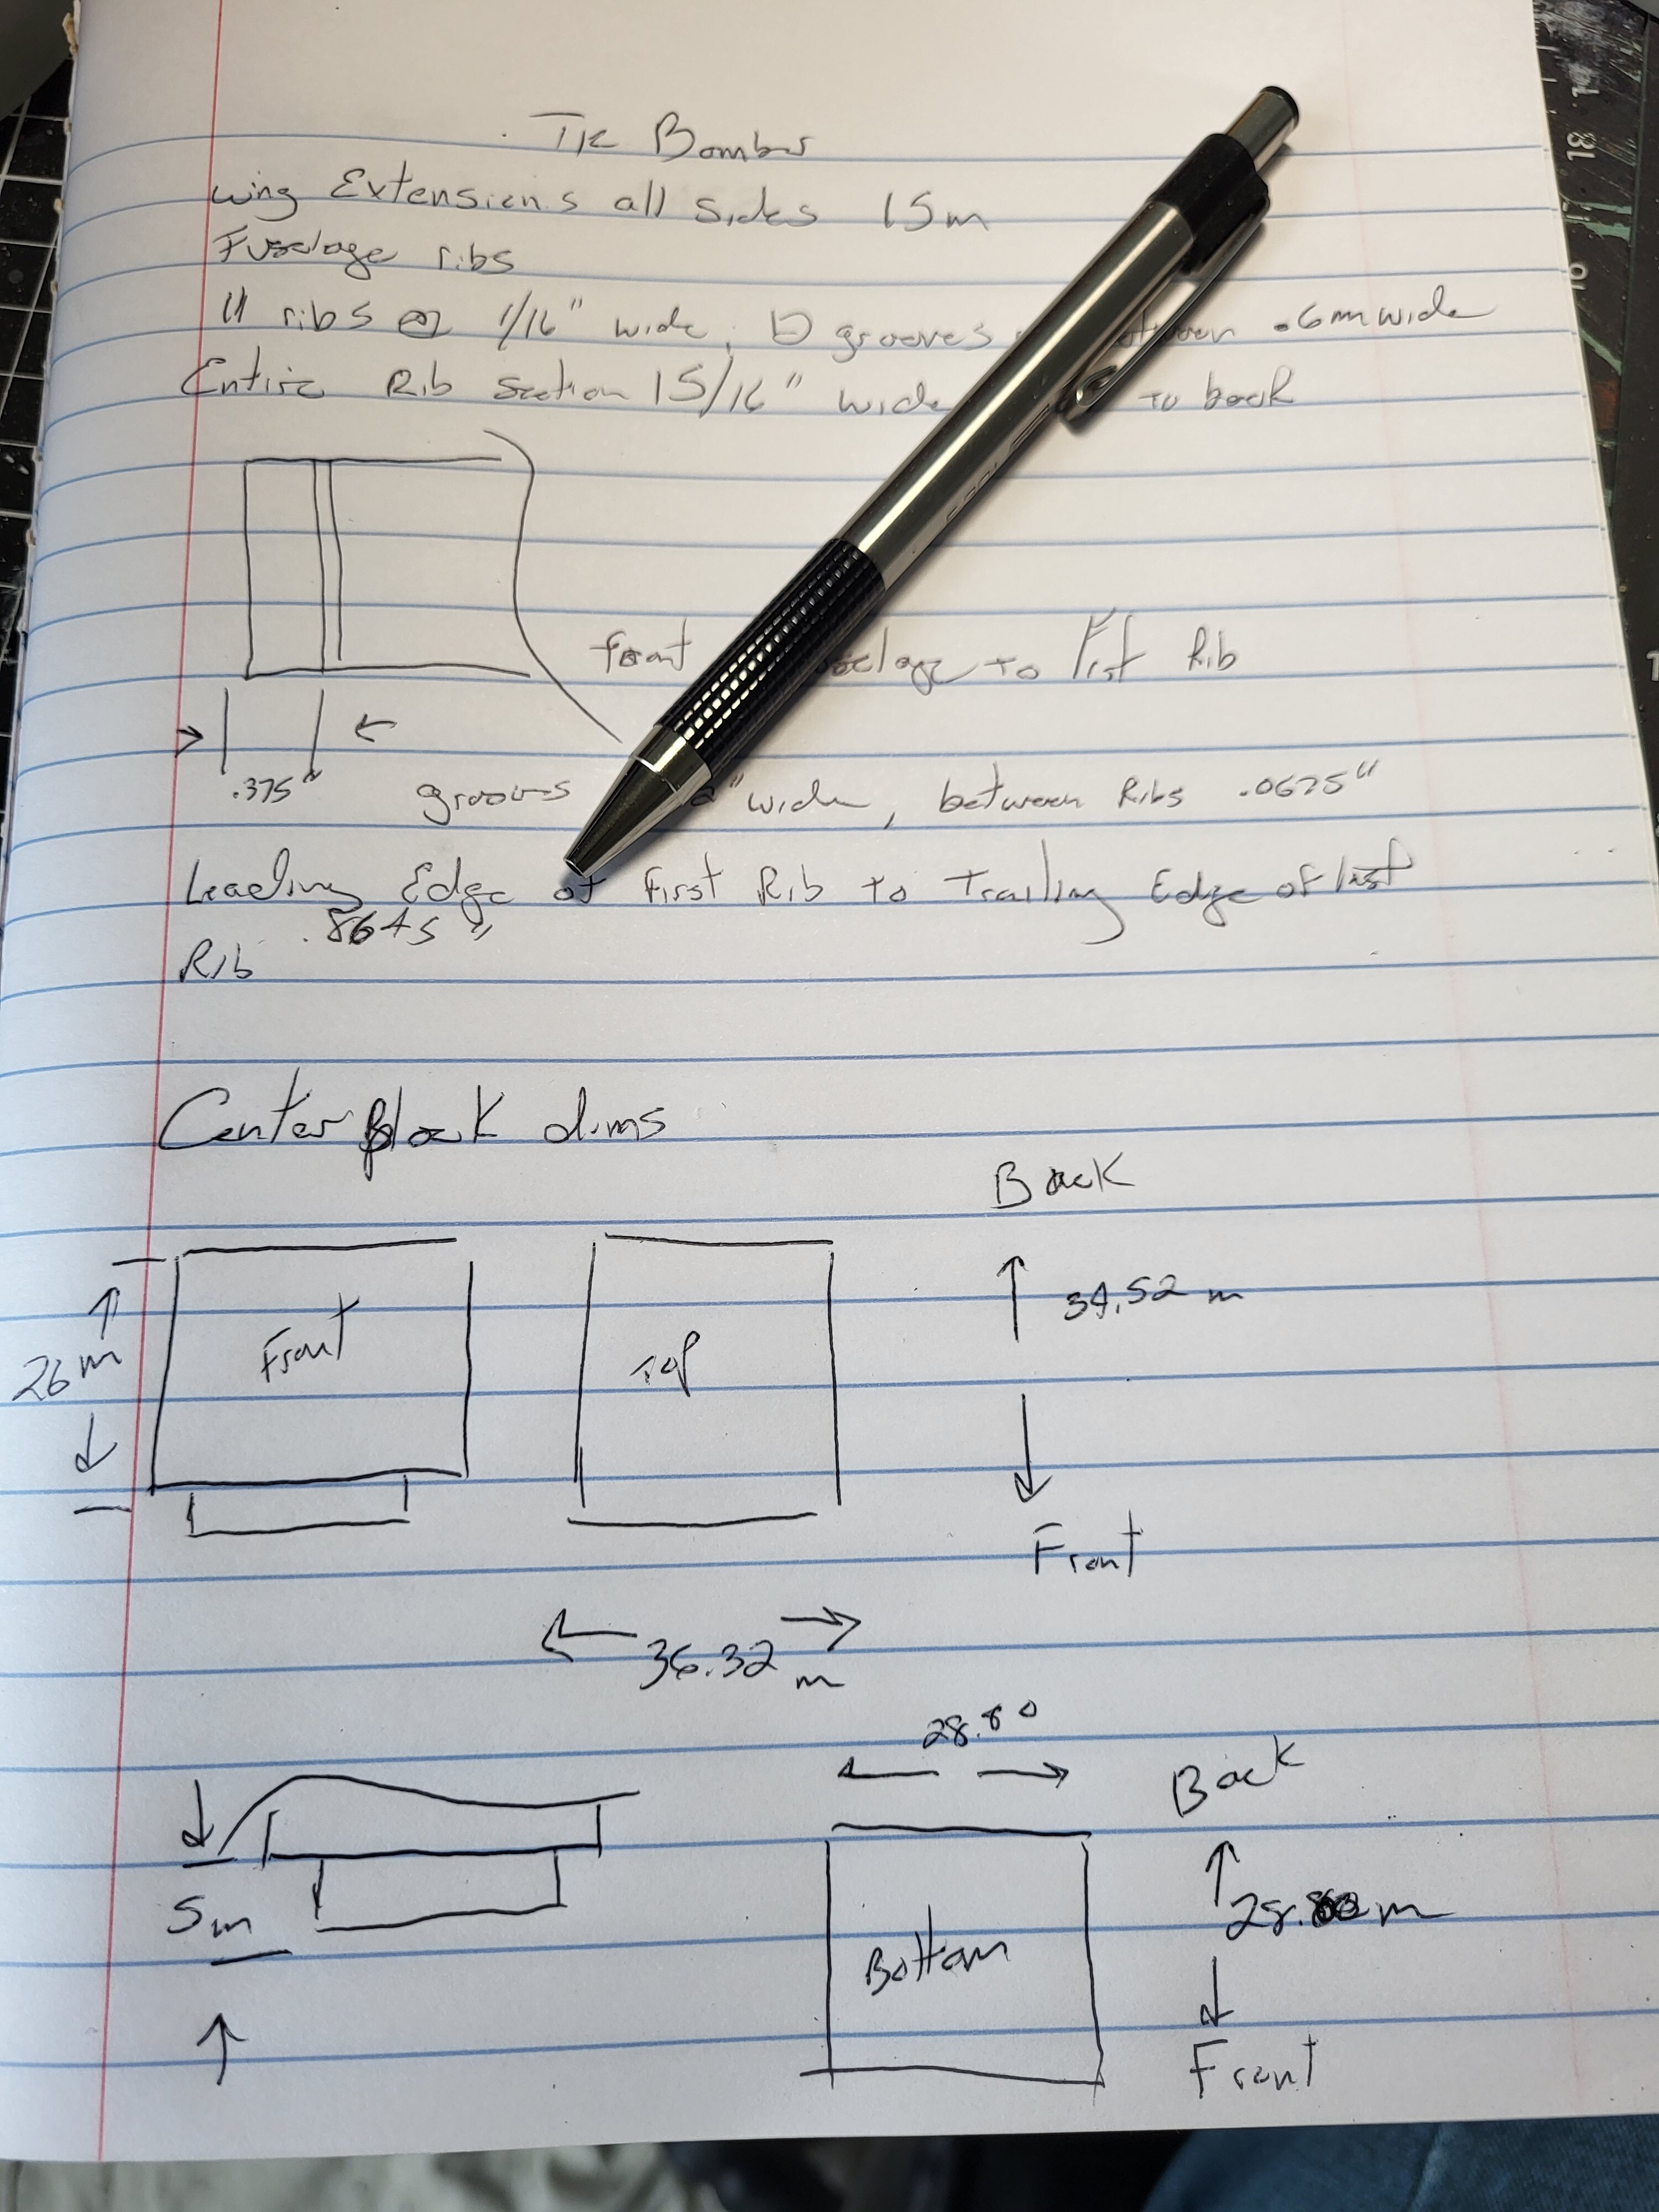 Tie Bomber
wing Extensions all sides 15m
Fuselage ribs
11 ribs @ 1/16" wide, 10 grooves .6mm wide
Entire Rib section 15/16" wide to back
front to First Rib
.375"
grooves "wide, between Ribs .0625"
Leading Edge of First Rib to Trailing Edge of last
Rib .8645"
Center Block dims
Back
Front
Top
34.52 m
26 m
Front
36.32 m
28.80
Back
5m
Bottom
28.80 m
Front
18